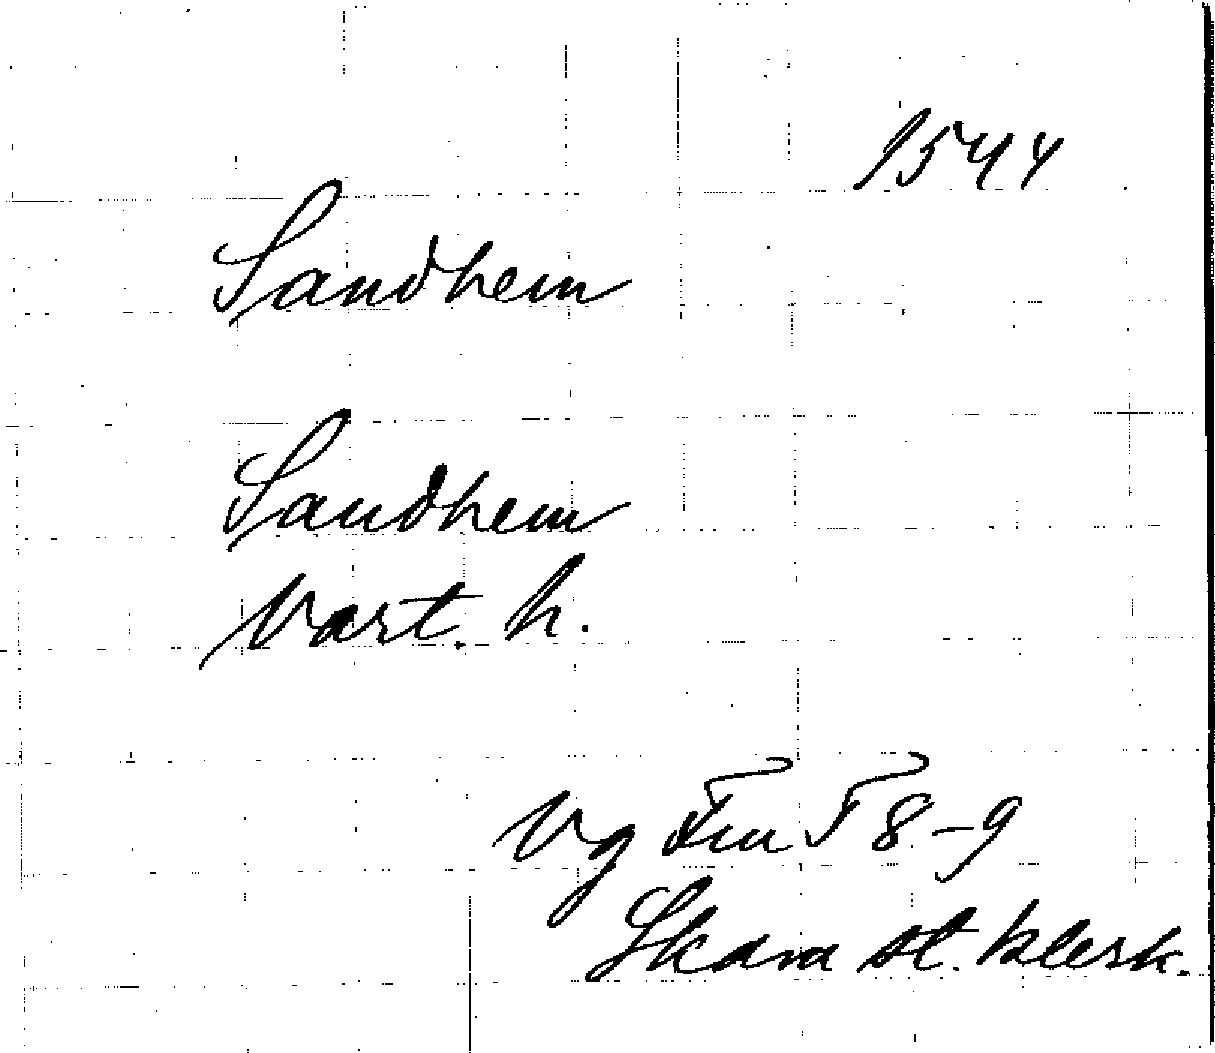 1544
Sandhem
Sandhem
Vart. h.
Vg Fm T 8-9
Skara st. klerk.